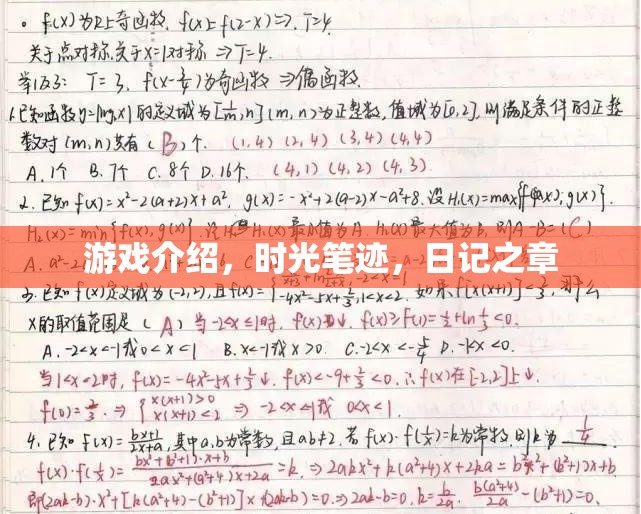 。f(x)为R上奇函数, f(x)=f(2-x)⇒, T=4.
关于点对称,关于x=1对称 ⇒T=4.
T=3, f(x-3/4)为奇函数 ⇒偶函数.
1.已知函数y=|log₂x|的定义域为[1/m,n](m,n为正整数,值域为[0,2],则满足条件的正整
数对(m,n)共有(B)个. (1,4)(2,4)(3,4)(4,4)
A.1个 B.7个 C.8个 D.16个. (4,1)(4,2)(4,3)
2.已知f(x)=x²-2(a+2)x+a², g(x)=-x²+2(a-2)x-a²+8.设H₁(x)=max{f(x),g(x)}.
H₂(x)=min{f(x),g(x)}.
游戏介绍，时光笔迹，日记之章
3.已知f(x)定义域为(-2,2),且f(x)=
-4x²-5x+2/3,1<x<2. 如果f[x(x+1)]<2/3,
x的取值范围是(A) 当-2<x≤1时, f(x)↓, f(x)≥f(1)=
A.-2<x<-1或0<x<1 B.x<-1或x>0. C.-2<x<-5/4 D.-1<x<0.
当1<x<2时, f(x)=-4x²-5x+2/3↓. f(x)<-9+2/3<0.∴f(x)在[-2,2]上↓.
f(0)=2/3.⇒{x(x+1)>0
x(x+1)<2 ⇒ -2<x<-1或 0<x<1.
4.已知f(x)=(bx+1)/(2x+a),其中a,b为常数,且ab≠2.若f(x)·f(1/x)=k为常数,则k为 1/4
f(x)·f(1/x)=(bx²+(b²+1)·x+b)/(2ax²+(a²+4)x+2a)=k.⇒2akx²+k(a²+4)x+2ka=bx²+(b²+1)x+b.
即(2ak-b)·x²+[k(a²+4)-(b²+1)]x+(2ak-b)=0.⇒2ak-b=0.k=b/2a. b(a²+4)/2a-(b²+1)=0.